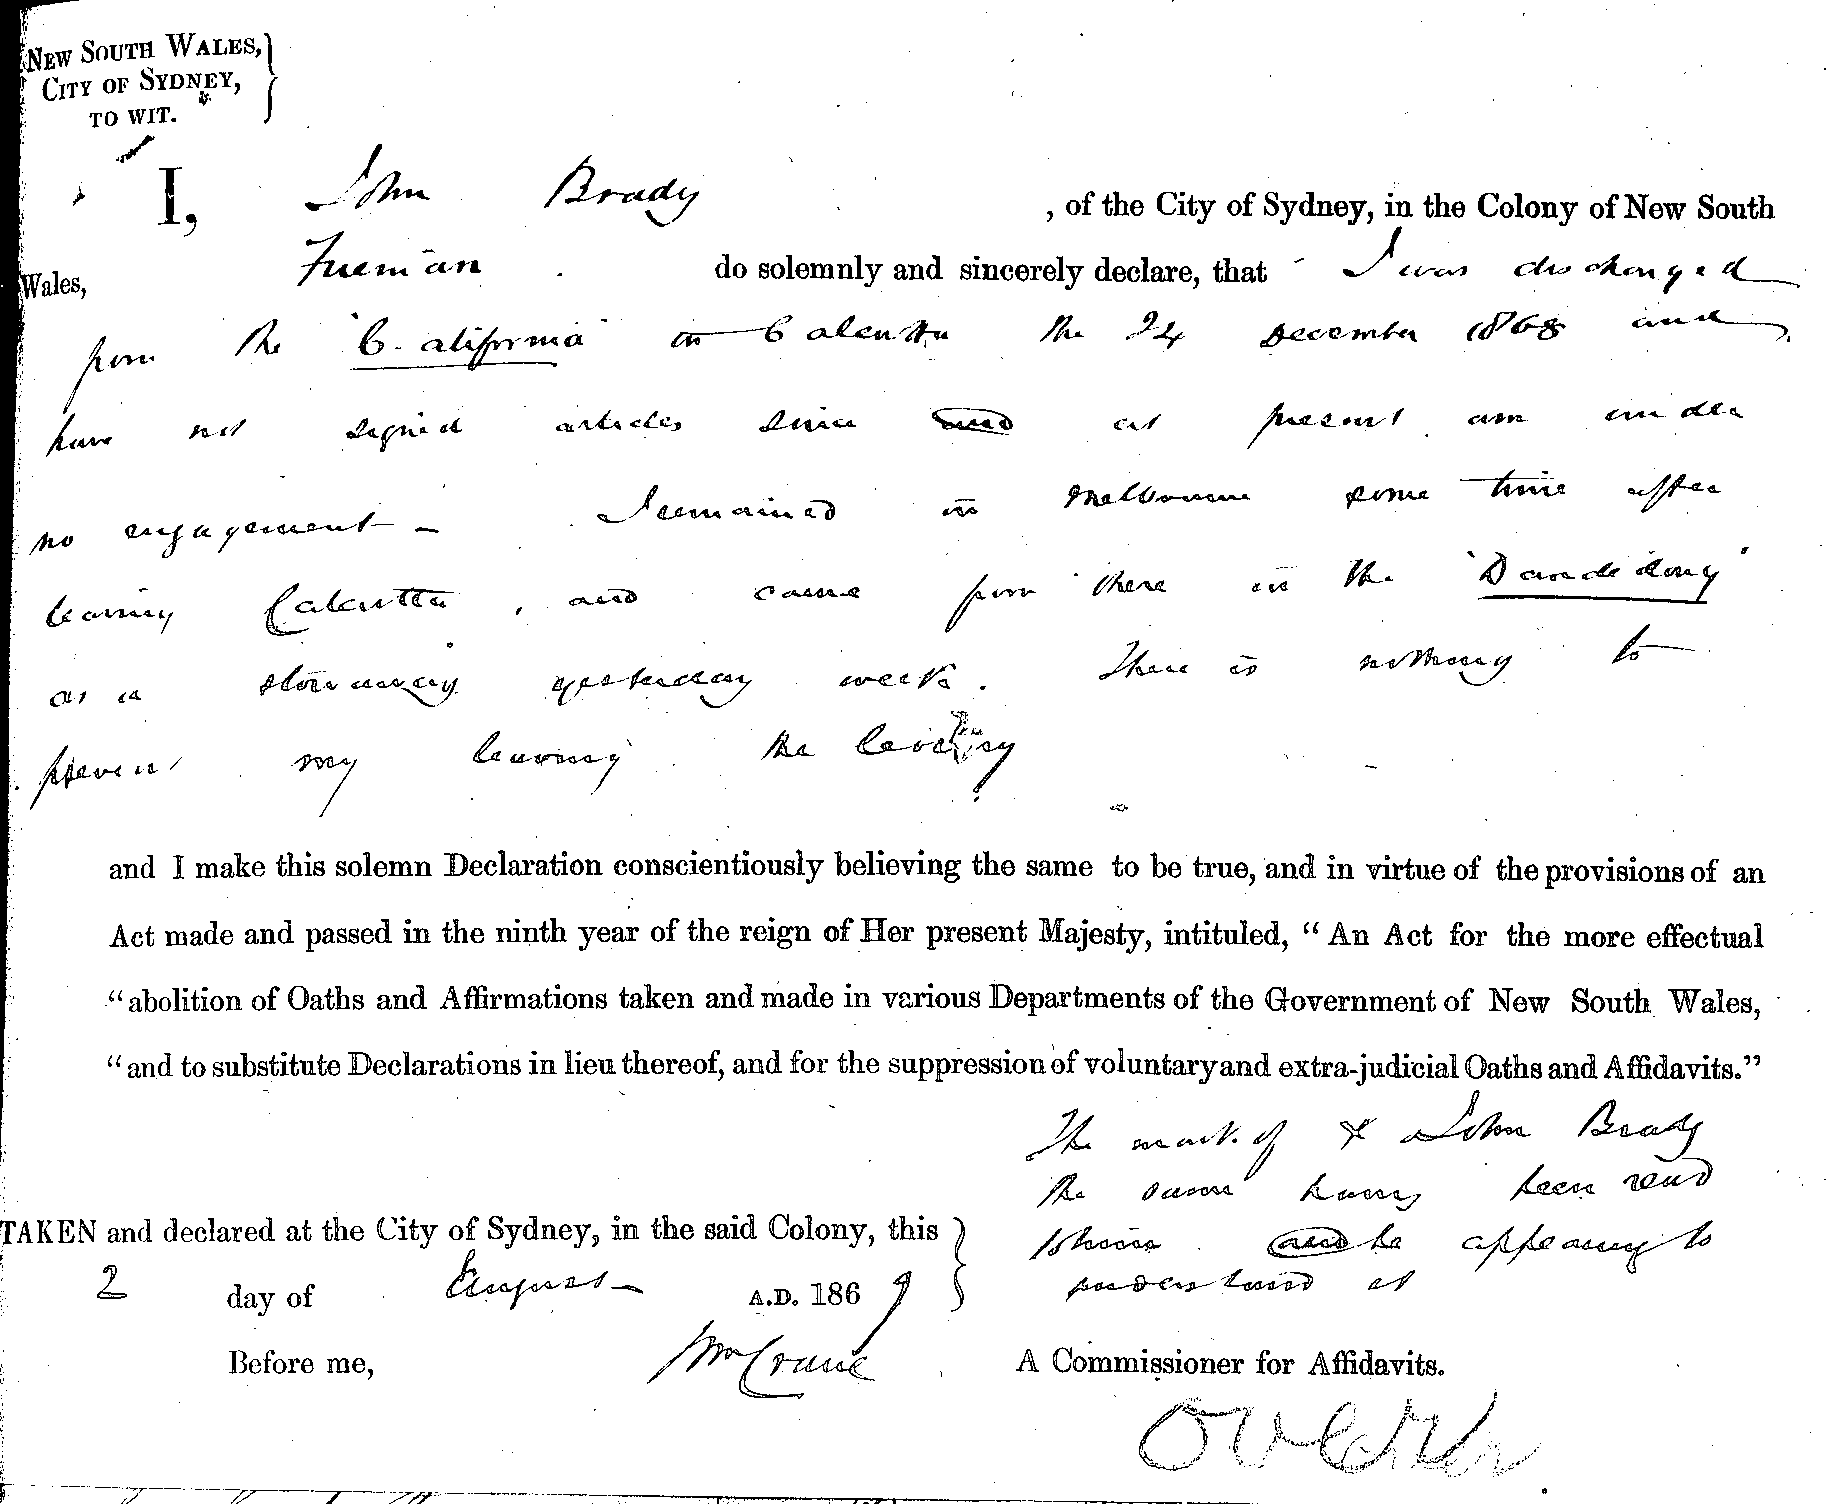 NEW SOUTH WALES,
CITY OF SYDNEY,
TO WIT.
I, John Brady , of the City of Sydney, in the Colony of New South
Wales, Fireman do solemnly and sincerely declare, that I was discharged
from the "California" in Calcutta the 24 December 1868 and
have not signed articles since and at present am under
no engagement – I remained in Melbourne some time after
leaving Calcutta, and came from there in the "Dandenong"
as a stowaway yesterday week. There is nothing to
prevent my leaving the
and I make this solemn Declaration conscientiously believing the same to be true, and in virtue of the provisions of an
Act made and passed in the ninth year of the reign of Her present Majesty, intituled, "An Act for the more effectual
"abolition of Oaths and Affirmations taken and made in various Departments of the Government of New South Wales,
"and to substitute Declarations in lieu thereof, and for the suppression of voluntary and extra-judicial Oaths and Affidavits."
The mark of x John Brady
the same having been read
to him and he appearing to
understand it
TAKEN and declared at the City of Sydney, in the said Colony, this
2 day of August A.D. 1869
Before me, Wm Crane A Commissioner for Affidavits.